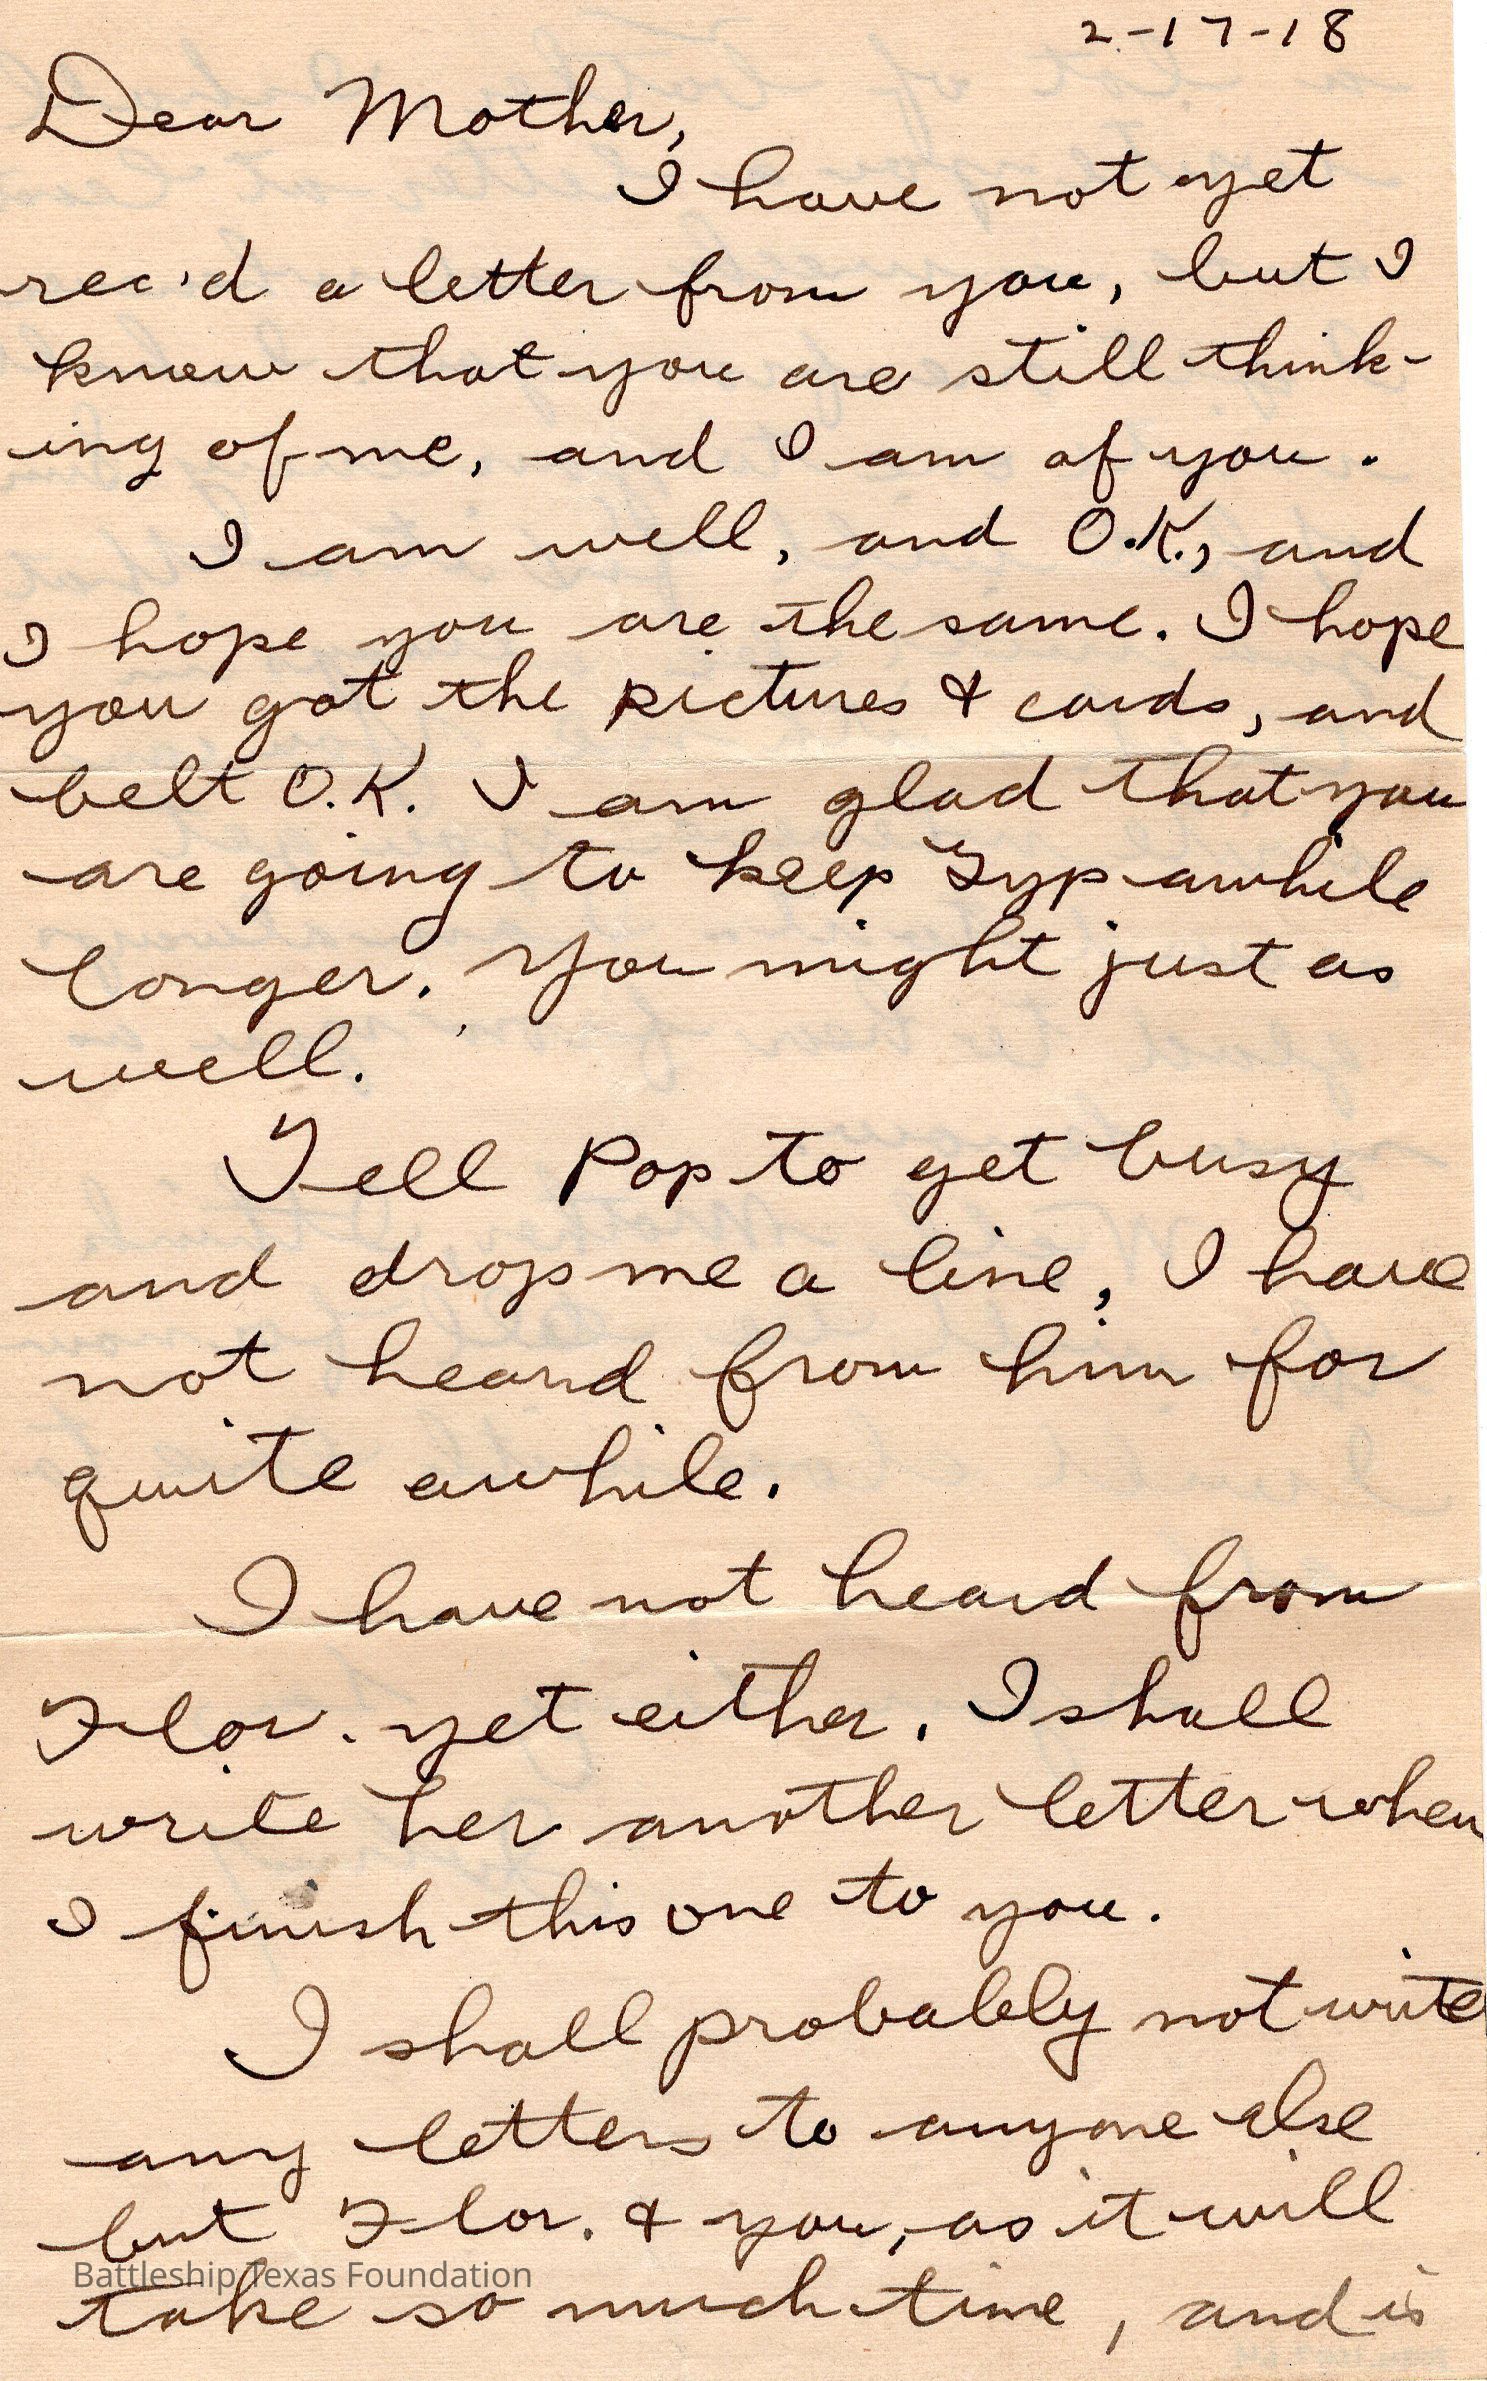 2-17-18
Dear Mother,
I have not yet
rec'd a letter from you, but I
know that you are still think-
ing of me, and I am of you.
I am well, and O.K., and
I hope you are the same. I hope
you got the pictures & cards, and
belt O.K. I am glad that you
are going to keep Gyp awhile
longer. You might just as
well.
Tell Pop to get busy
and drop me a line, I have
not heard from him for
quite awhile.
I have not heard from
Flor. yet either. I shall
write her another letter when
I finish this one to you.
I shall probably not write
any letters to anyone else
but Flor. & you, as it will
take so much time, and is
Battleship Texas Foundation